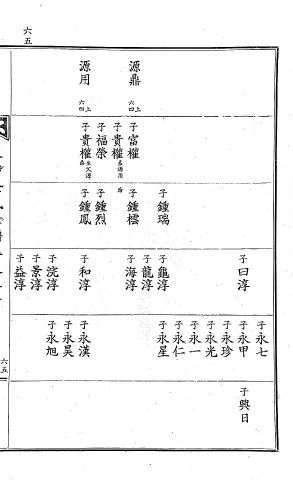 六五
源鼎 上六四
源用 上六四
子富權
子貴權 源用后
子福榮
子貴權 生父源鼎
子鍾瑞
子鍾橒
子鍾烈
子鍾鳳
子曰淳
子龜淳
子龍淳
子海淳
子和淳
子浣淳
子景淳
子益淳
子永七
子永甲
子永珍
子永光
子永一
子永仁
子永星
子永漢
子永昊
子永旭
子興日
六五